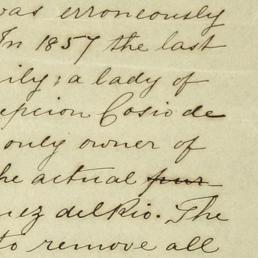 was erroneously
In 1857 the last
ily; a lady of
epcion Cosio de
only owner of
he actual
nez del Rio. The
to remove all